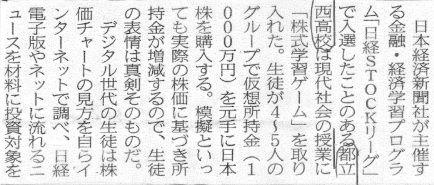 日本経済新聞社が主催す
る金融・経済学習プログラ
ム「日経ＳＴＯＣＫリーグ」
で入選したことのある都立
西高校は現代社会の授業に
「株式学習ゲーム」を取り
入れた。生徒が４～５人の
グループで仮想所持金（１
０００万円）を元手に日本
株を購入する。模擬といっ
ても実際の株価に基づき所
持金が増減するので、生徒
の表情は真剣そのものだ。
デジタル世代の生徒は株
価チャートの見方を自らイ
ンターネットで調べ、日経
電子版やネットに流れるニ
ュースを材料に投資対象を